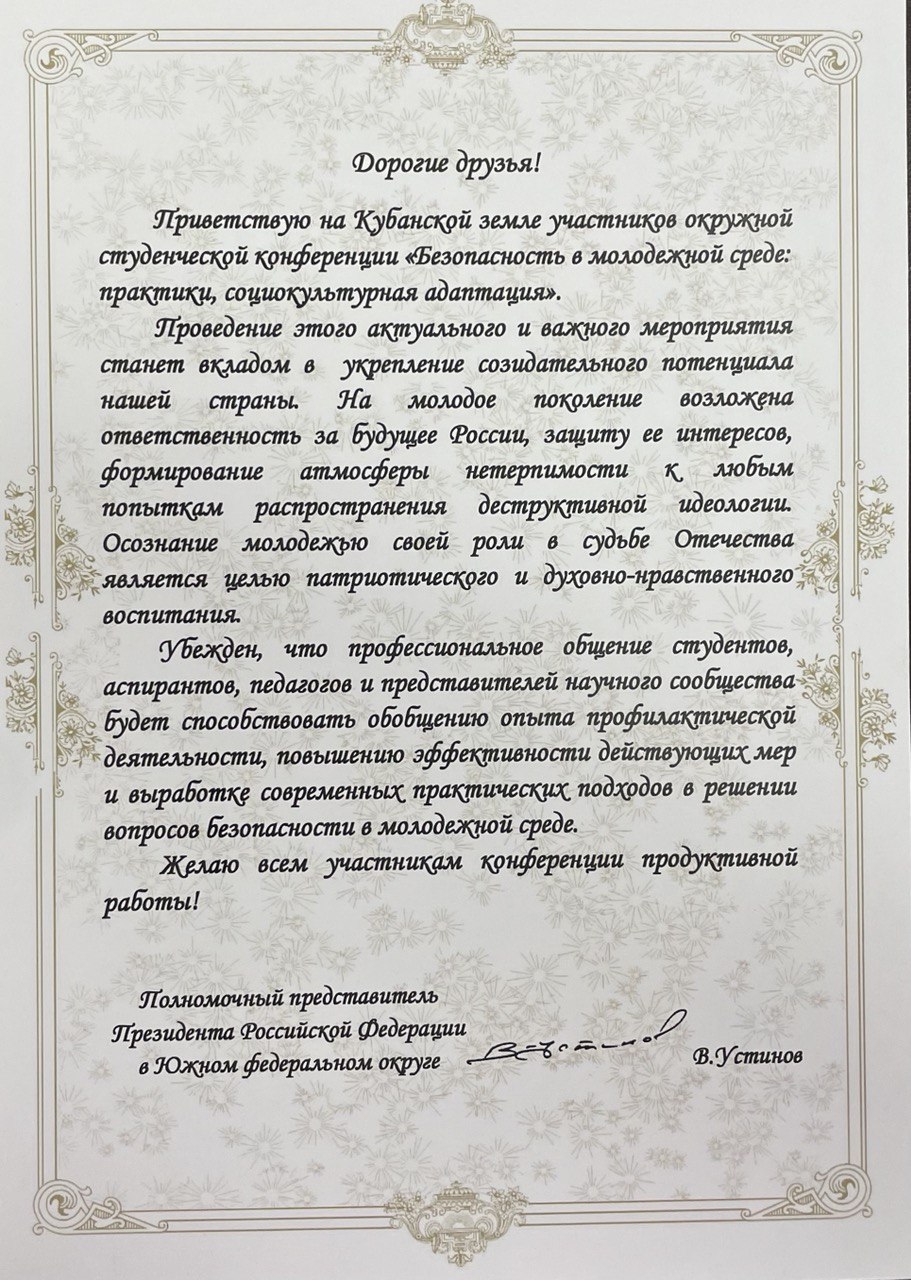 Дорогие друзья!
Приветствую на Кубанской земле участников окружной
студенческой конференции «Безопасность в молодежной среде:
практики, социокультурная адаптация».
Проведение этого актуального и важного мероприятия
станет вкладом в укрепление созидательного потенциала
нашей страны. На молодое поколение возложена
ответственность за будущее России, защиту ее интересов,
формирование атмосферы нетерпимости к любым
попыткам распространения деструктивной идеологии.
Осознание молодежью своей роли в судьбе Отечества
является целью патриотического и духовно-нравственного
воспитания.
Убежден, что профессиональное общение студентов,
аспирантов, педагогов и представителей научного сообщества
будет способствовать обобщению опыта профилактической
деятельности, повышению эффективности действующих мер
и выработке современных практических подходов в решении
вопросов безопасности в молодежной среде.
Желаю всем участникам конференции продуктивной
работы!
Полномочный представитель
Президента Российской Федерации
в Южном федеральном округе
В.Устинов